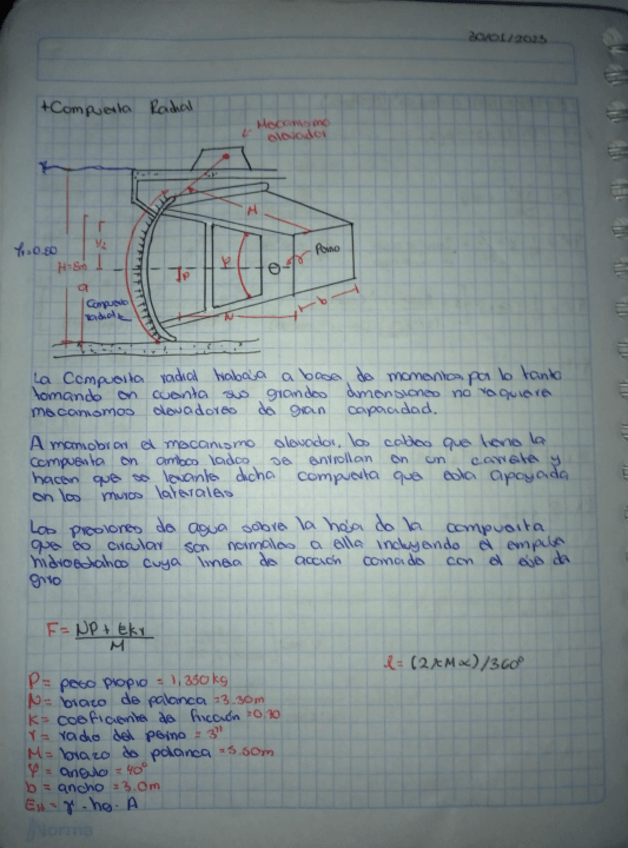 30/01/2023
+Compuerta Radial
Mecanismo
elevador
M
Perno
H=5m
a
φ
P
Compuerta
radial
N
b
La Compuerta radial trabaja a base de momentos por lo tanto
tomando en cuenta sus grandes dimensiones no requiere
mecanismos elevadores de gran capacidad.
A maniobrar el mecanismo elevador, los cables que tiene la
compuerta en ambos lados se enrollan en un carrete y
hacen que se levante dicha compuerta que esta apoyada
en los muros laterales
Las presiones de agua sobre la hoja de la compuerta
que es circular son normales a ella incluyendo el empuje
hidrostatico cuya linea de acción coincide con el eje de
giro
F= NP + Ekr
M
l= (2πM∝)/360°
P= peso propio = 1,350kg
N= brazo de palanca =3.30m
K= coeficiente de fricción =0.30
r= radio del perno = 3"
M= brazo de palanca =5.50m
φ= angulo =40°
b= ancho =3.0m
EH= γ · hg · A
Norma